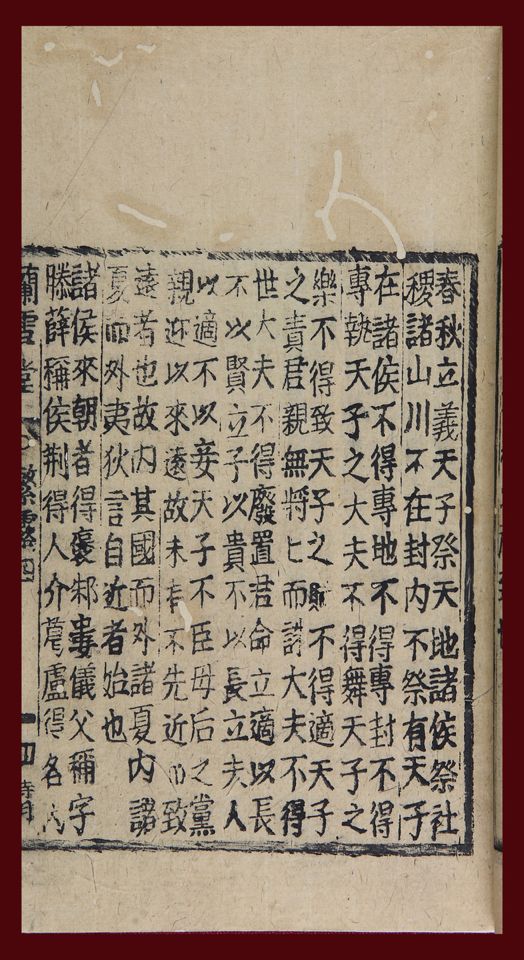 春秋立義天子祭天地諸侯祭社
稷諸山川不在封内不祭有天子
在諸侯不得專地不得專封不得
專執天子之大夫不得舞天子之
樂不得致天子之賦不得適天子
之貴君親無將匕而誅大夫不得
世大夫不得廢置君命立適以長
不以賢立子以貴不以長立夫人
以適不以妾天子不臣母后之黨
親迎以來遠故未有不先近而致
遠者也故内其國而外諸夏内諸
夏而外夷狄言自近者始也
諸侯來朝者得襃邾婁儀父稱字
滕薛稱侯荆得人介葛盧得名内
蘭雪堂 繁露四 四